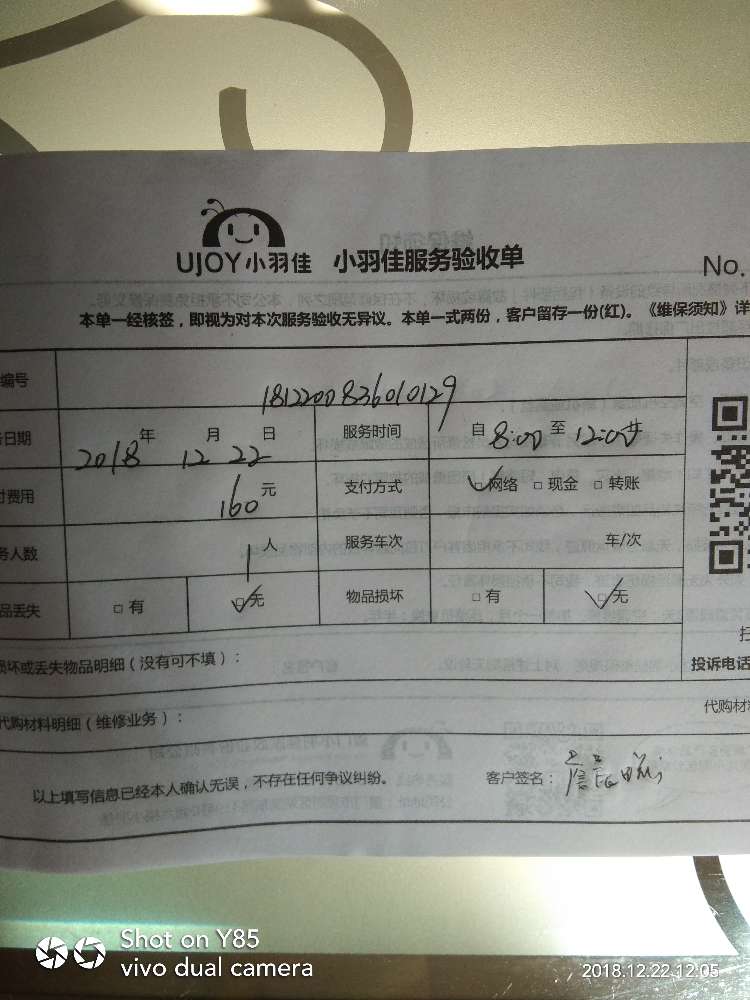 UJOY小羽佳 小羽佳服务验收单
No.
本单一经核签，即视为对本次服务验收无异议。本单一式两份，客户留存一份(红)。《维保须知》详
编号 1812200836010129
日期 2018年 12月 22日 服务时间 自8:00至12:00
费用 160元 支付方式 ☑网络 □现金 □转账
务人数 1人 服务车次 车/次
品丢失 □有 ☑无 物品损坏 □有 ☑无
损坏或丢失物品明细(没有可不填)：
投诉电话
代购材料明细(维修业务)：
代购材
以上填写信息已经本人确认无误，不存在任何争议纠纷。 客户签名：
Shot on Y85
vivo dual camera
2018.12.22 12:05